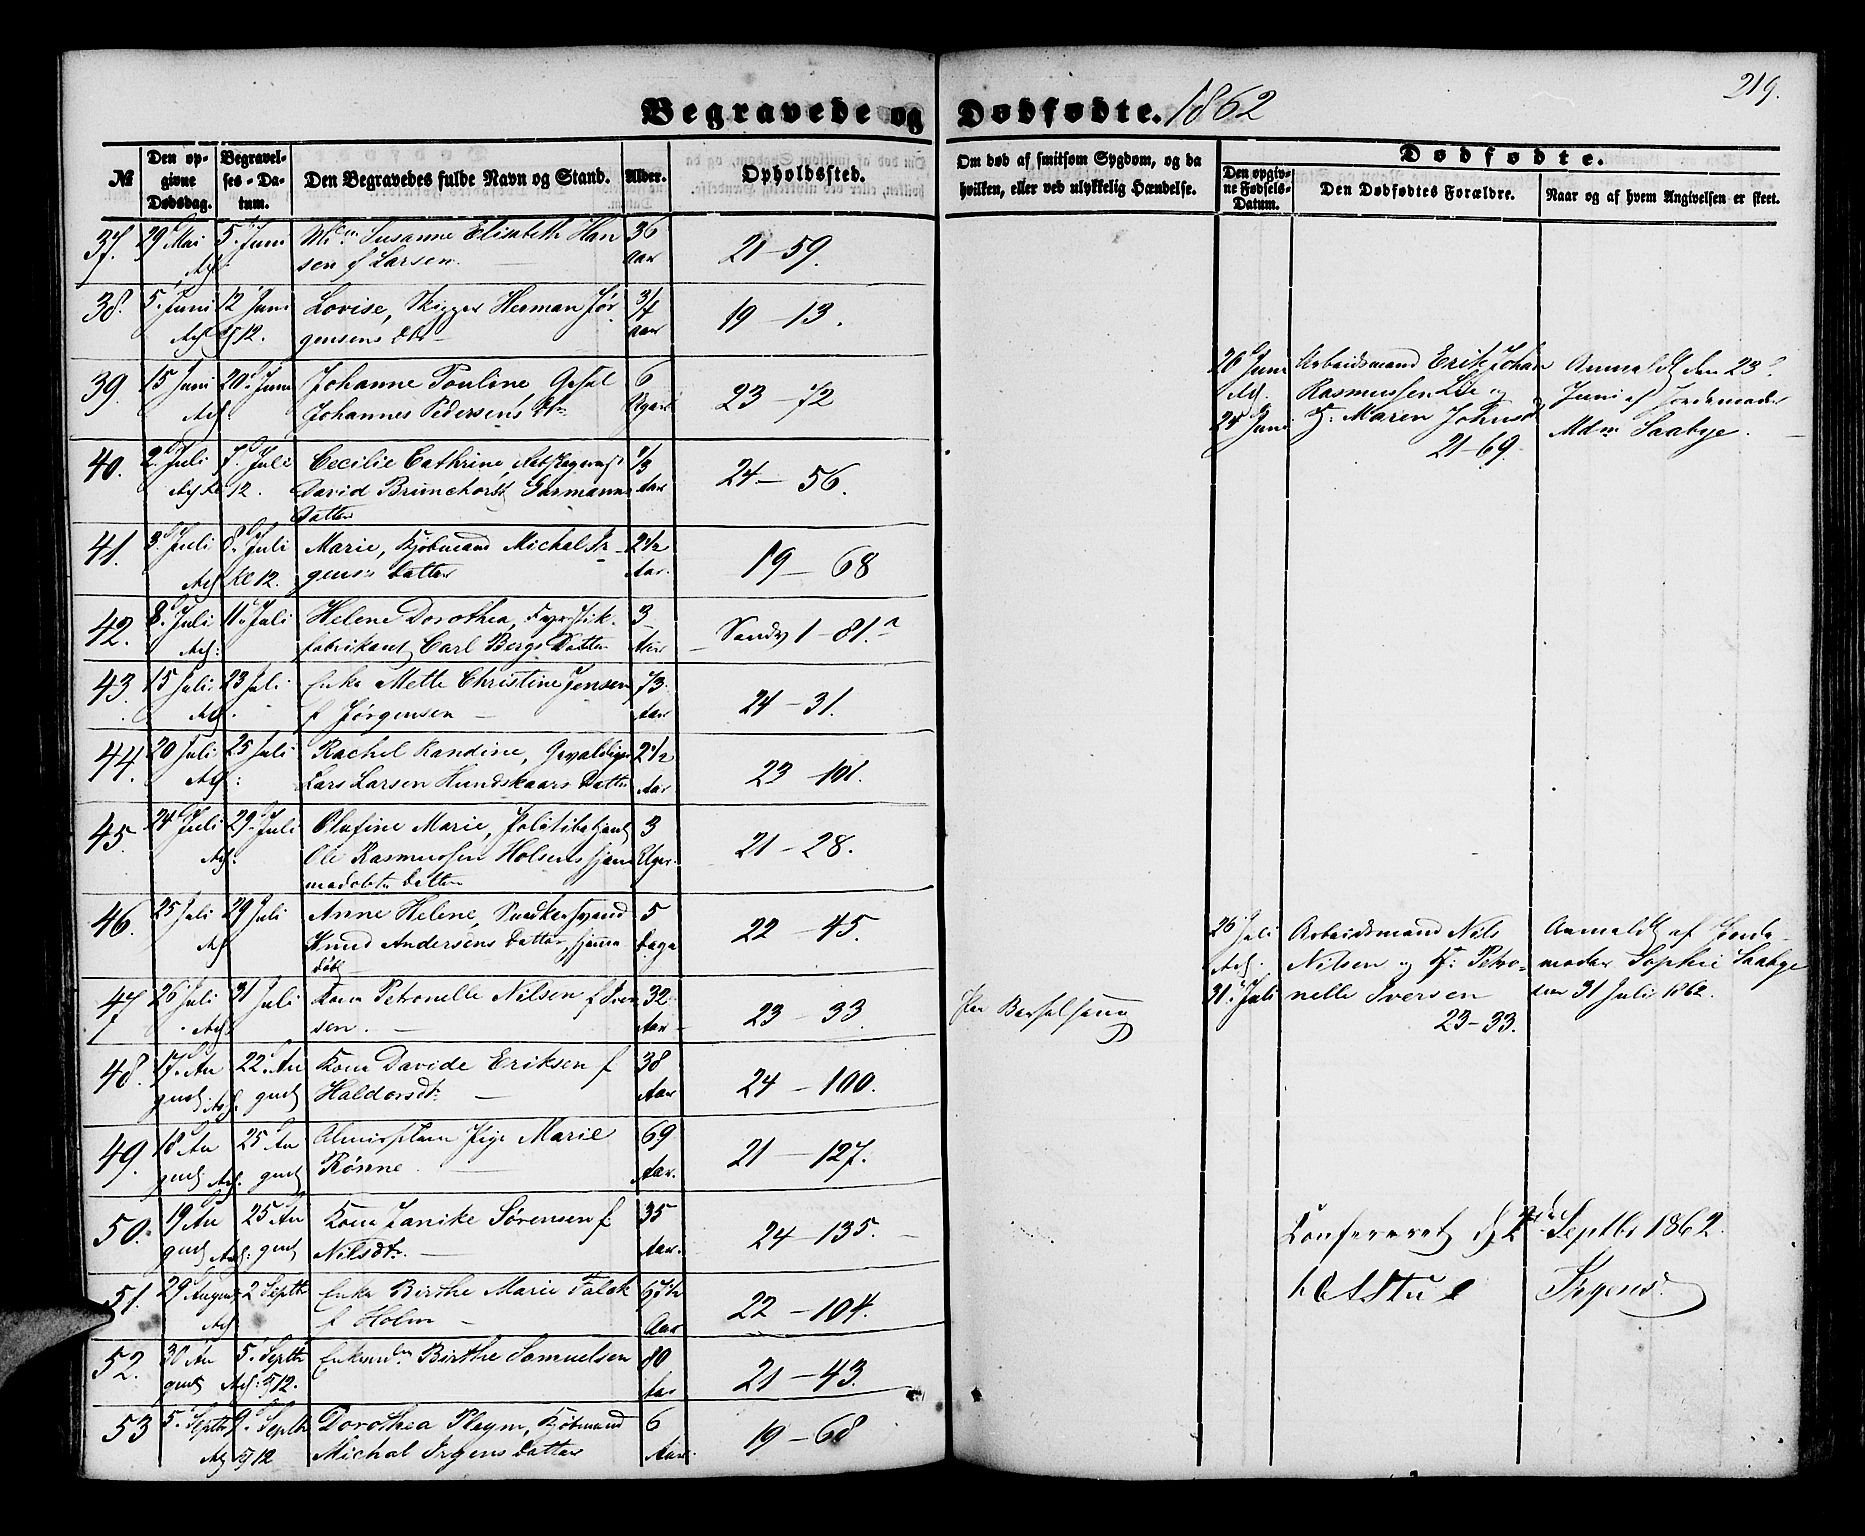 Begravede og Dødfødte. 1862
219.
№
Den opgivne Dødsdag.
Begravelses-Datum.
Den Begravedes fulde Navn og Stand.
Alder.
Opholdssted.
Om død af smitsom Sygdom, og da hvilken, eller ved ulykkelig Hændelse.
Dødfødte.
Den opgivne Fødsels-Datum.
Den Dødfødtes Forældre.
Naar og af hvem Angivelsen er skeet.
37. 29 Mai 5. Juni Susanne Elisabeth Han 36
sen f Larsen. Aar 21-59.
38. 5. Juni 12 Juni Lovise, Skipper Herman Jør 3/4
12. gensens Dtr Aar 19-13.
39. 15 Juni 20. Juni Johanne Pouline, Gesel 6
Johannes Pedersens Dtr 23-72
26 Juni Arbeidsmand Erik Johan Anmeldt den 23d
Rasmussen Lie og Juni af Jordemoder
24 Juni H. Maren Johnsd Mdm Saabye.
21-69.
40. 2. Juli 7. Juli Cecilie Cathrine, 1/3
12. David Brunchorst Garmanns Aar 24-56.
Datter
41. 3. Juli 8. Juli Marie, Kjøbmand Michal Ir 2 1/2
Kl 12. gens's Datter Aar. 19-68
42. 8. Juli 11. Juli Helene Dorothea, Fyrstik- 3
fabrikant Carl Bergs Datter Aar Sandv 1-81.a
43. 15 Juli 23 Juli Enke Mette Christine Jensen 73
f Jørgensen Aar 24-31.
44. 20 Juli 25 Juli Rachel Randine, Gevaldiger 2 1/2
Lars Larsen Hundskaars Datter Aar 23-101.
45. 24 Juli 29. Juli Olufine Marie, Politibetjent 3
Ole Rasmussen Holsens hjem Uger 21-28.
madøbte Datter
46. 25 Juli 29 Juli Anne Helene, 5
Knud Andersens Datter, hjemme Dage 22-45.
døbt
26 Juli Arbeidsmand Nils Anmeldt af Jorde-
Nilsen og H: Petro- moder Sophie Saabye
31. Juli nelle Iversen den 31 Juli 1862.
23-33.
47. 26 Juli 31 Juli Kone Petronelle Nilsen f Iver 32
sen. Aar 23-33 Barselseng
48. 17. Au 22. Au Kone Davide Eriksen f 38
gust gust Haldorsdt: Aar 24-100.
49. 18 Au 25 Au Almisslem Pige Marie 69
gust gust Rønne. Aar. 21-127.
50. 19 Au 25 Au Kone Janike Sørensen f 35
gust gust Nilsdt. Aar. 24-135.
51. 29 August 2 Septbr Enke Birthe Marie Falck 67 1/2
f Holm Aar 22-104.
52. 30 Au 5. Septbr Birthe Samuelsen 80
gust 12. Aar 21-43.
53 5. Septbr 9. Septbr Dorothea Pleym, Kjøbmand 6
12 Michal Irgens Datter Aar. 19-68
Confereret d 2d Septbr 1862.
Irgens.